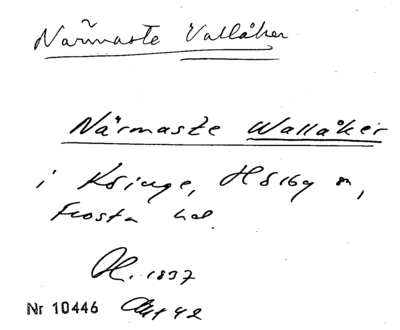 Närmaste Vallåker
Närmaste Wallåker
i Ksinge, Hörby sn,
Frosta hd.
1837
Nr 10446 Akt 42